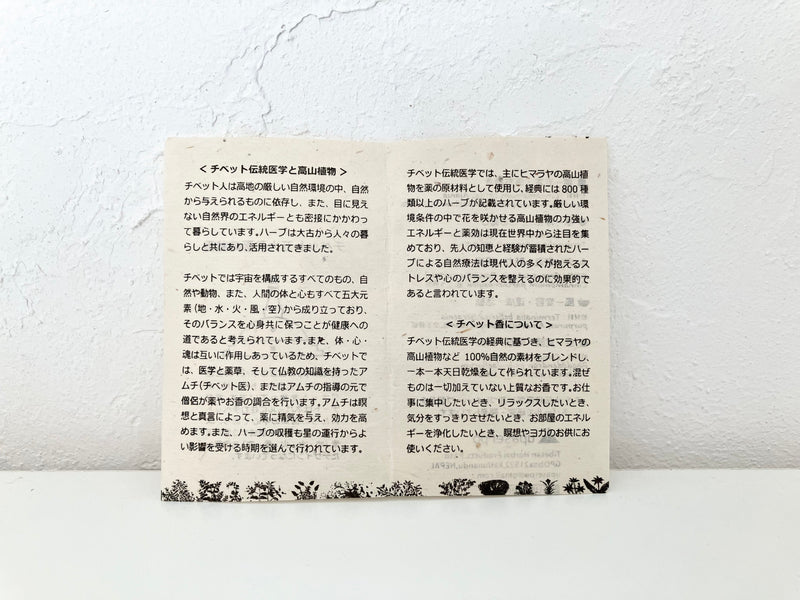 < チベット伝統医学と高山植物 >
チベット人は高地の厳しい自然環境の中、自然
から与えられるものに依存し、また、目に見え
ない自然界のエネルギーとも密接にかかわっ
て暮らしています。ハーブは太古から人々の暮
らしと共にあり、活用されてきました。
チベットでは宇宙を構成するすべてのもの、自
然や動物、また、人間の体と心もすべて五大元
素（地・水・火・風・空）から成り立っており、
そのバランスを心身共に保つことが健康への
道であると考えられています。また、体・心・
魂は互いに作用しあっているため、チベットで
は、医学と薬草、そして仏教の知識を持ったア
ムチ(チベット医)、またはアムチの指導の元で
僧侶が薬やお香の調合を行います。アムチは瞑
想と真言によって、薬に精気を与え、効力を高
めます。また、ハーブの収穫も星の運行からよ
い影響を受ける時期を選んで行われています。
チベット伝統医学では、主にヒマラヤの高山植
物を薬の原材料として使用し、経典には 800 種
類以上のハーブが記載されています。厳しい環
境条件の中で花を咲かせる高山植物の力強い
エネルギーと薬効は現在世界中から注目を集
めており、先人の知恵と経験が蓄積されたハー
ブによる自然療法は現代人の多くが抱えるス
トレスや心のバランスを整えるのに効果的で
あると言われています。
< チベット香について >
チベット伝統医学の経典に基づき、ヒマラヤの
高山植物など 100%自然の素材をブレンドし、
一本一本天日乾燥をして作られています。混ぜ
ものは一切加えていない上質なお香です。お仕
事に集中したいとき、リラックスしたいとき、
気分をすっきりさせたいとき、お部屋のエネル
ギーを浄化したいとき、瞑想やヨガのお供にお
使いください。